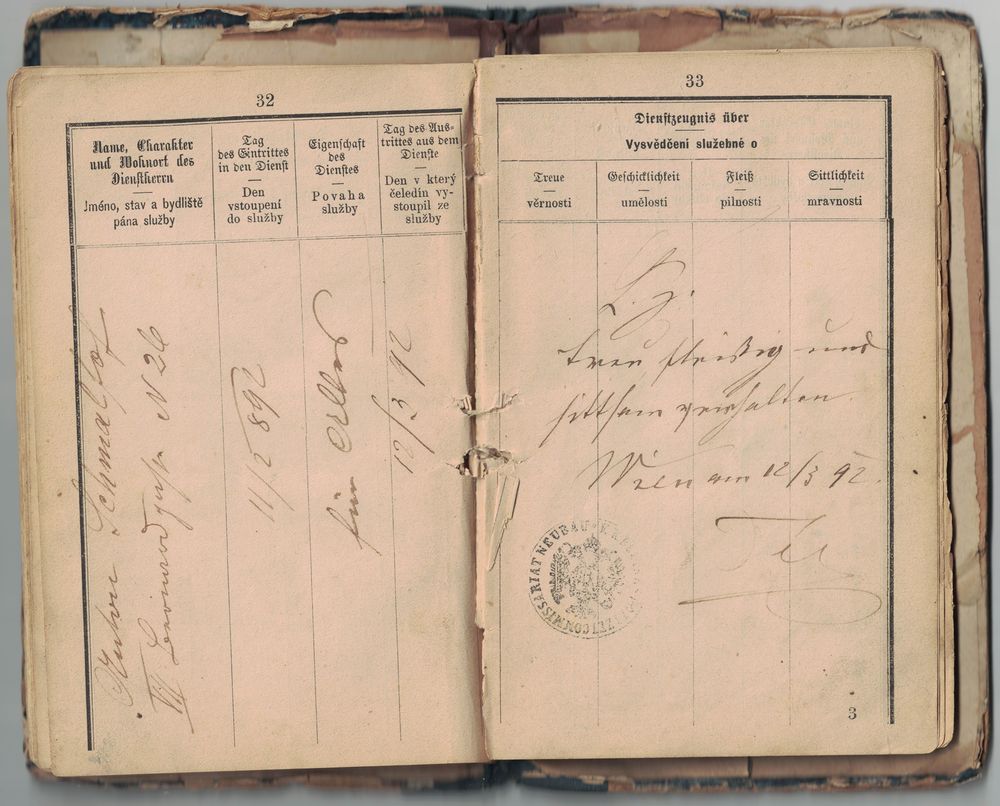 32
Name, Charakter
und Wohnort des
Dienstherrn
Jméno, stav a bydliště
pána služby
Tag
des Eintrittes
in den Dienst
Den
vstoupení
do služby
Eigenschaft
des
Dienstes
Povaha
služby
Tag des Aus-
trittes aus dem
Dienste
Den v který
čeledín vy-
stoupil ze
služby
Anton Schmalhof
VII N 26
11/2 892
für Alles
12/3 92
33
Dienstzeugnis über
Vysvědčení služebné o
Treue
věrnosti
Geschicklichkeit
umělosti
Fleiß
pilnosti
Sittlichkeit
mravnosti
treu fleißig und
sittsam verhalten.
Wien am 12/3 92.
COMMISSARIAT NEUBAU
3